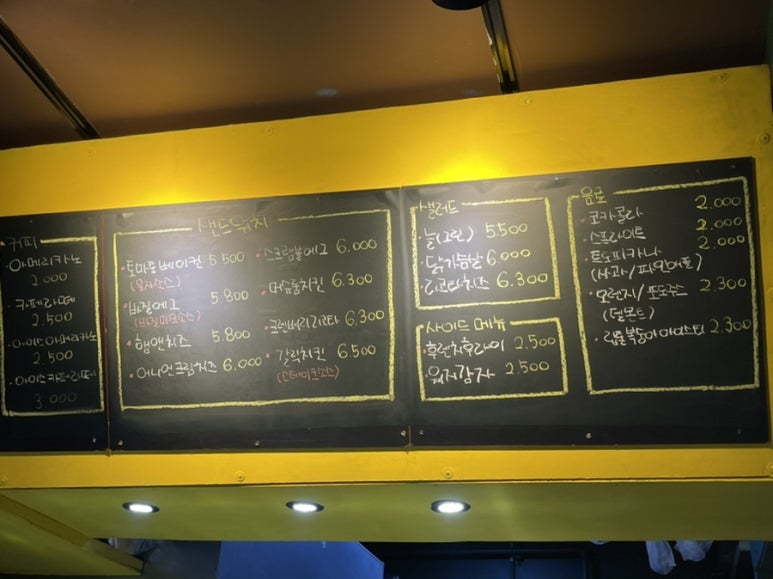 커피
아메리카노
2.000
카페라떼
2.500
아이스아메리카노
2.500
아이스카페라떼
3.000
샌드위치
토마토베이컨 5.500
바질에그 5.800
(바질마요소스)
햄앤치즈 5.800
어니언크림치즈 6.000
스크램블에그 6.000
머쉬룸치킨 6.300
크랜베리리코타 6.300
갈릭치킨 6.500
(스테이크소스)
샐러드
(그린) 5.500
닭가슴살 6.000
리코타치즈 6.300
사이드 메뉴
후렌치후라이 2.500
웨지감자 2.500
음료
코카콜라 2.000
스프라이트 2.000
트로피카나 2.000
(사과/파인애플)
오렌지/포도쥬스 2.300
(델몬트)
립톤복숭아아이스티 2.300